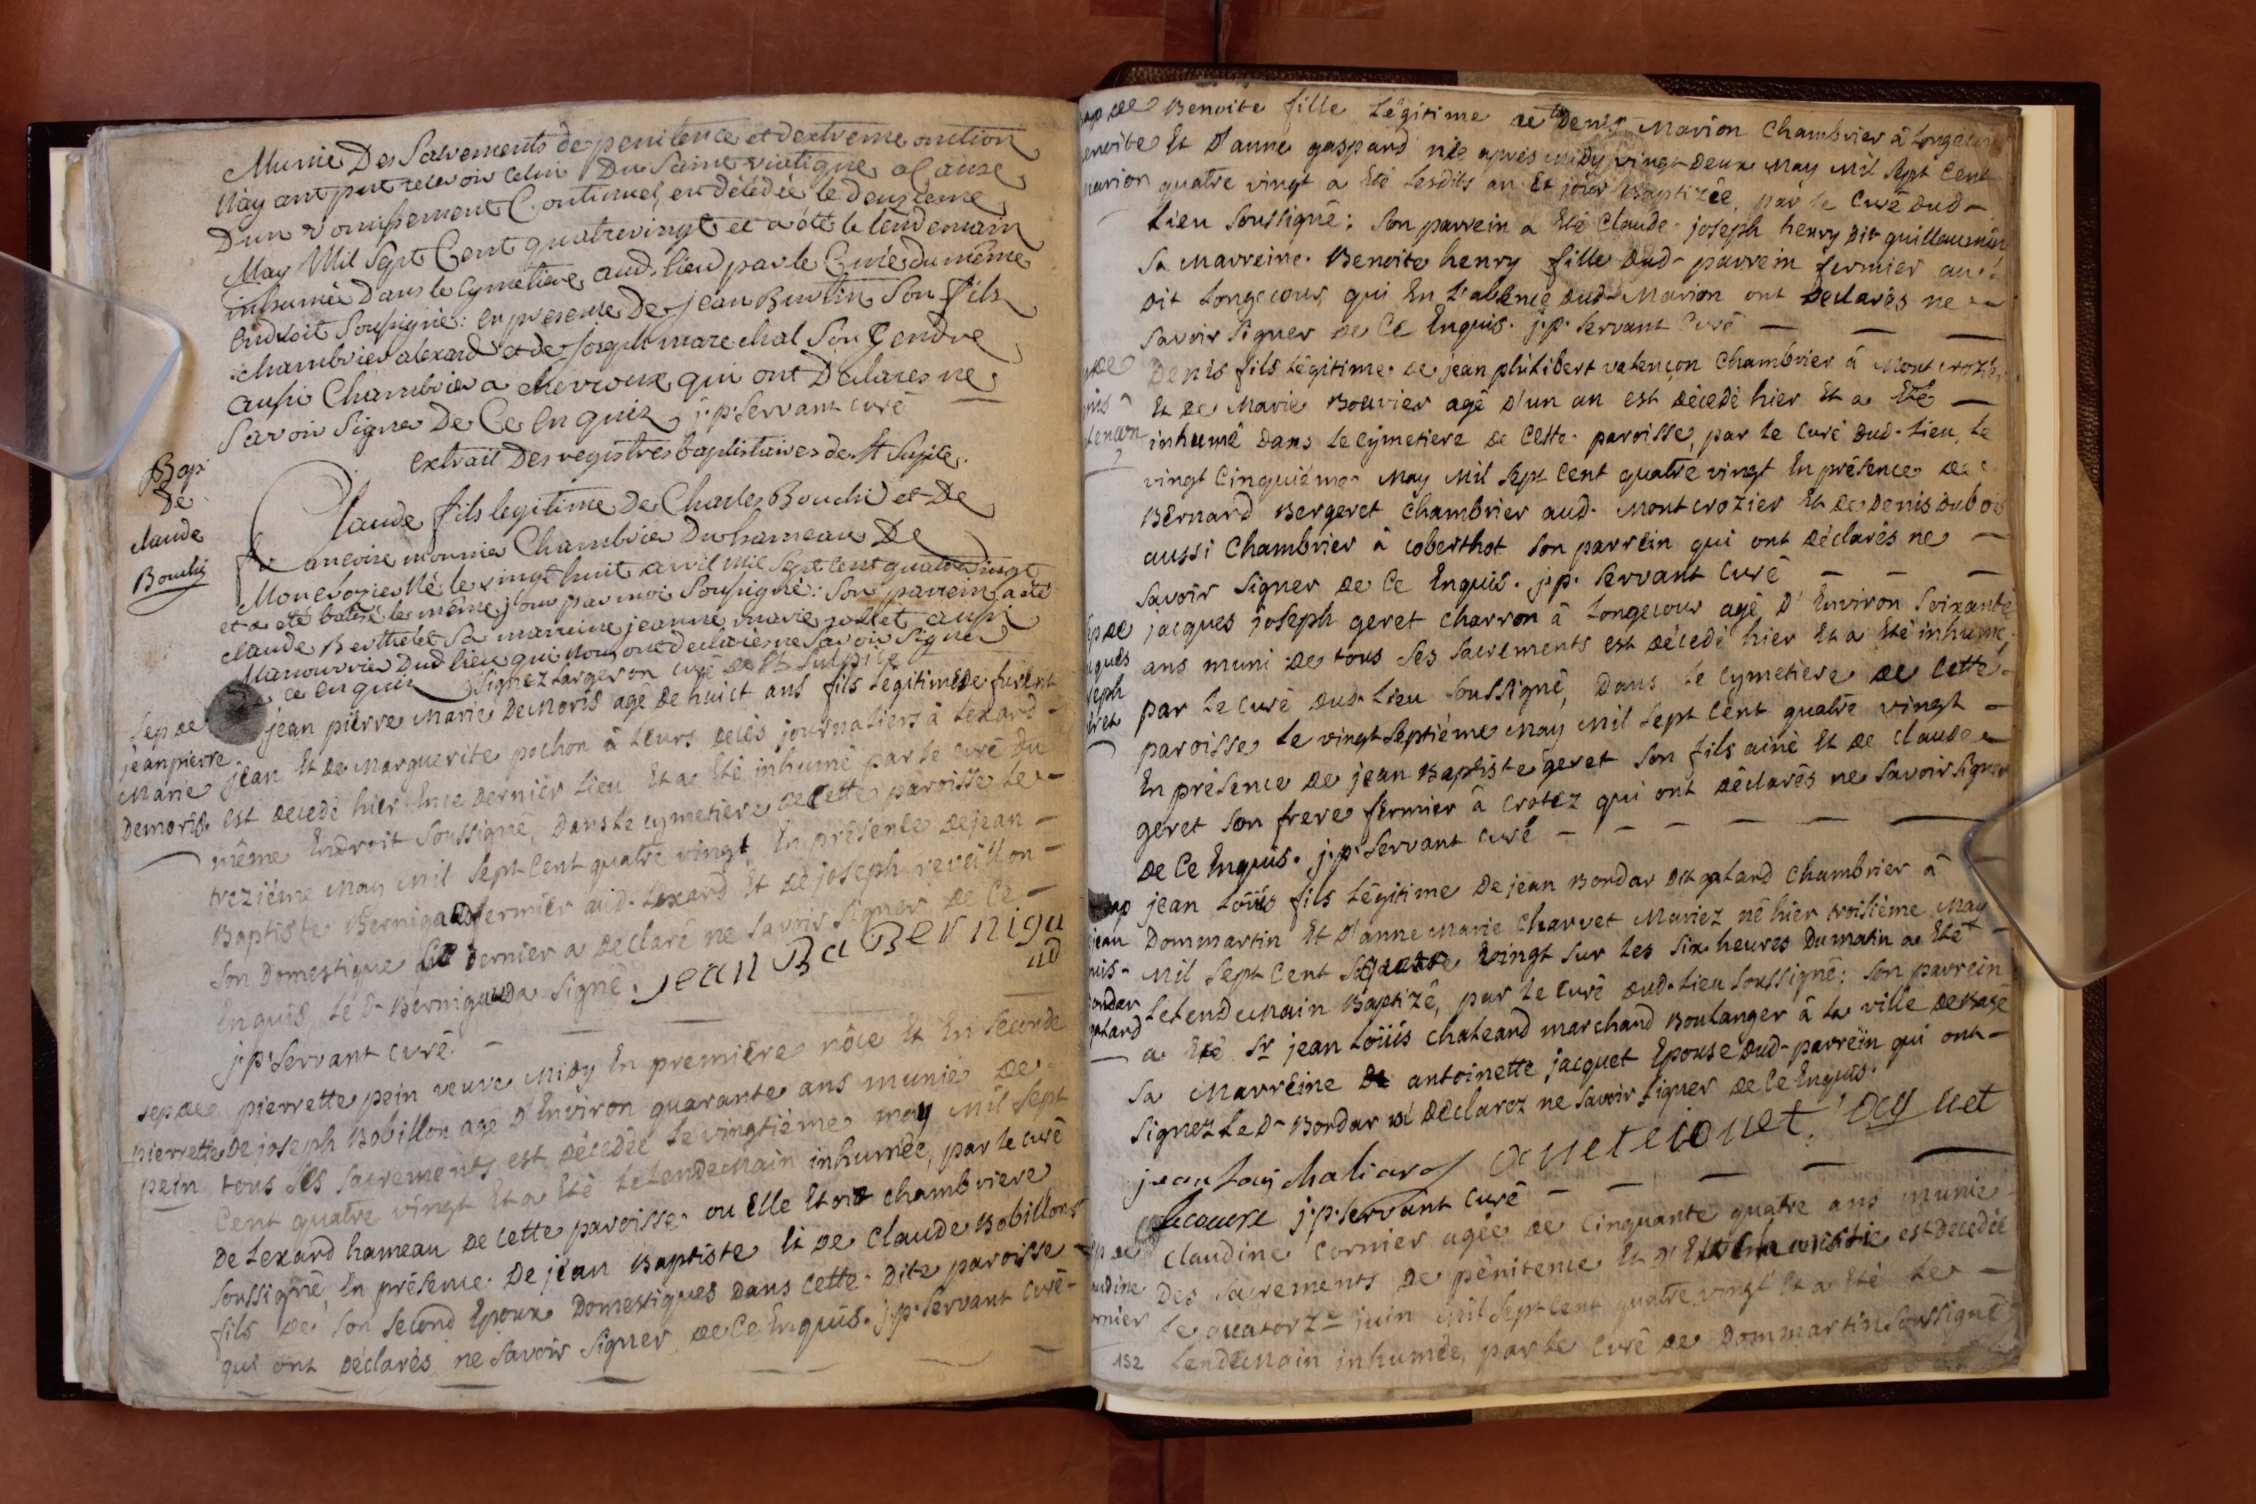 Munie Des Sacrements de penitence et dextreme onction
N'ay ant put recevoir celui Du Saint viatique a Cause
D'un vomissement Continuel, en décédée le deuxieme
May Mil Sept Cent quatrevingt et a été le lendemain
inhumée Dans le Cymetiere aud. lieu par le Curé du même
Endroit Soussigné: En presence De jean Burtin Son fils
chambrier alexard et de joseph marechal Son Gendre
aussi Chambrier a chevroux qui ont Déclarés ne
Savoir Signer De Ce Enquis j: p: Servant curé
extrait Des registres baptistaires de St Supile.
Bap.
De
claude
Bouchy
Claude fils legitime De Charles Bouchi et De
francoise monnier Chambrier Du hameau De
Moncrozier Né le vingt huit avril Mil Sept Cent quatre vingt
et a été batisé le même jour par moi Soussigné: Son parrein a été
claude Berthelet Sa marreine jeanne marie jollet aussi
Manouvrier Dud. lieu qui nous ont declarés ne Savoir Signer
de ce enquis Signez Largeron curé de St Sulpice
Sep de
jean pierre
Marie
Demoris
jean pierre Marie Demoris agé De huict ans fils Legitime de furent
jean Et de Marguerite pochon à leurs décès journaliers à Lexard
est decedé hier En ce Dernier Lieu Et a Eté inhumé par le curé Du
même Endroit Soussigné, Dans le cymetiere de Cette paroisse Le
treziéme May Mil Sept Cent quatre vingt En présence de jean
Baptiste Bernigaud fermier aud. Lexard Et De joseph reveillon
Son Domestique Ce Dernier a Declaré ne Savoir Signer De Ce
Enquis, Le Dt Bernigaud a Signé. Jean Ba Bernigu
ud
j: p: Servant curé
Sep de
pierrette
pein
pierrette pein veuve Midy En premiere nôce Et En Seconde
De joseph Bobillon agé D'Environ quarante ans munie De
tous Ses Sacrements est Décédée Le vingtiéme may Mil Sept
Cent quatre vingt Et a Eté Le Lendemain inhumée, par le curé
De Lexard hameau de cette paroisse ou Elle Etoit chambriere
Soussigné, En présence De jean Baptiste Et De Claude Bobillons
fils De Son Second Epoux Domestiques Dans cette Ditte paroisse
qui ont Déclarés ne Savoir Signer De Ce Enquis. j: p: Servant curé
Bap de
Benoite
Marion
Benoite fille Légitime de Denis Marion Chambrier à Longecour
Et D'anne gaspard née après Midy vingt Deux May Mil Sept Cent
quatre vingt a Eté Lesdits an Et jour Baptizée, par le Curé Dud
Lieu Soussigné: Son parrein a Eté Claude joseph henry Dit guillaumin
Sa Marreine Benoite henry fille Dud. parrein fermier au
Dit Longecour qui En L'absence Dud. Marion ont Déclarés ne
Savoir Signer De Ce Enquis. j: p: Servant Curé
Denis fils Légitime de jean philibert valençon Chambrier à Montcrozier
Et De Marie Bouvier agé D'un an est Décédé hier Et a Eté
inhumé Dans le Cymetiere De Cette paroisse, par Le Curé Dud. Lieu, Le
vingt Cinquiéme May Mil Sept Cent quatre vingt En présence De
Bernard Bergeret Chambrier aud. Montcrozier Et De Denis Dubois
aussi Chambrier à Coberthot Son parrein qui ont Déclarés ne
Savoir Signer De Ce Enquis. j: p: Servant Curé
jacques joseph geret charron à Longecour agé D'Environ Soixante
ans muni De tous Ses Sacrements est Décédé hier Et a Eté inhumé
par Le Curé Dud. Lieu Soussigné, Dans le Cymetiere De Cette
paroisse Le vingt Septiéme May Mil Sept Cent quatre vingt
En présence De jean Baptiste geret Son fils ainé Et De Claude
geret Son frere fermier à Crotez qui ont Déclarés ne Savoir Signer
De Ce Enquis. j: p: Servant Curé
jean Loüis fils Légitime De jean Bordar Dit galand Chambrier à
Dommartin Et D'anne Marie Charvet Mariez né hier troisiéme May
Mil Sept Cent quatre vingt Sur Les Six heures Du matin a Eté
Le Lendemain Baptizé, par Le Curé Dud. Lieu Soussigné: Son parrein
a Eté Sr jean Loüis chaleard marchand Boulanger à La ville De Bagé
Sa Marreine antoinette jacquet Epouse Dud. parrein qui ont
Signez Le Dt Bordar a Déclarez ne Savoir Signer De Ce Enquis.
jean louis chaliard
j: p: Servant Curé
Claudine Cornier agée De Cinquante quatre ans munie
Des Sacrements De pénitence Et D'Eucharistie est Decedée
Le quatorze juin Mil Sept Cent quatre vingt Et a Eté Le
Lendemain inhumée, par Le Curé De Dommartin Soussigné
152